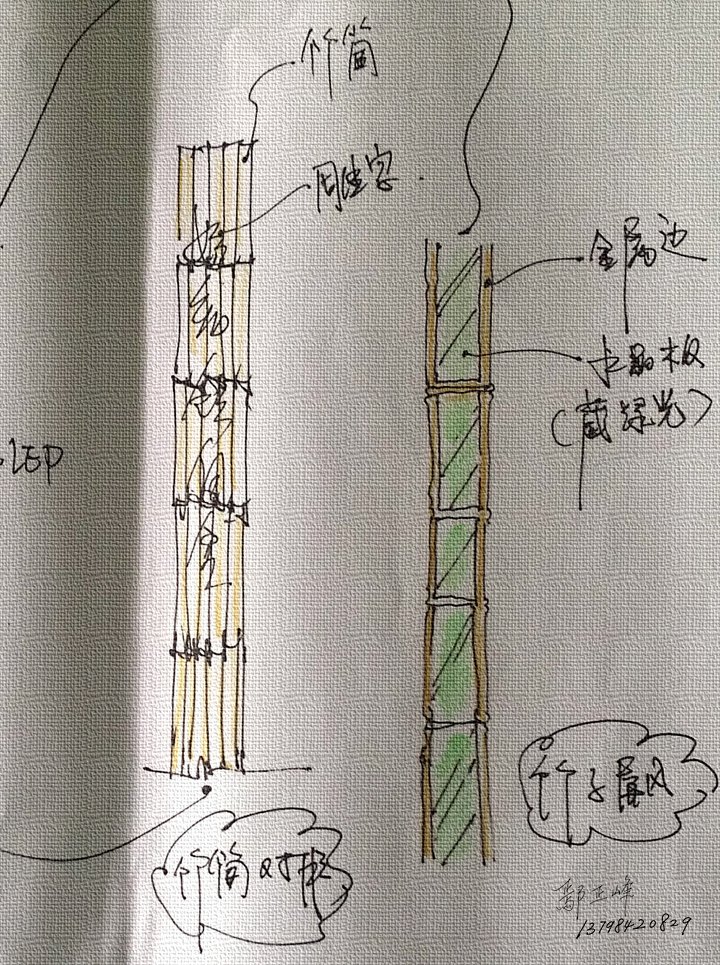 竹筒
雕字
金属边
水晶板
(藏绿光)
LED
竹子屏风
竹筒对联
鄢正峰
13798420829